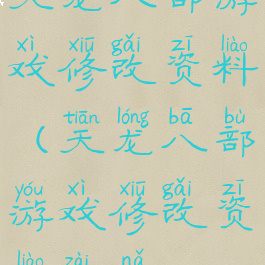 天龙八部游
xì xiū gǎi zī liào
戏修改资料
tiān lóng bā bù
（天龙八部
yóu xì xiū gǎi zī
游戏修改资
liào zài nǎ